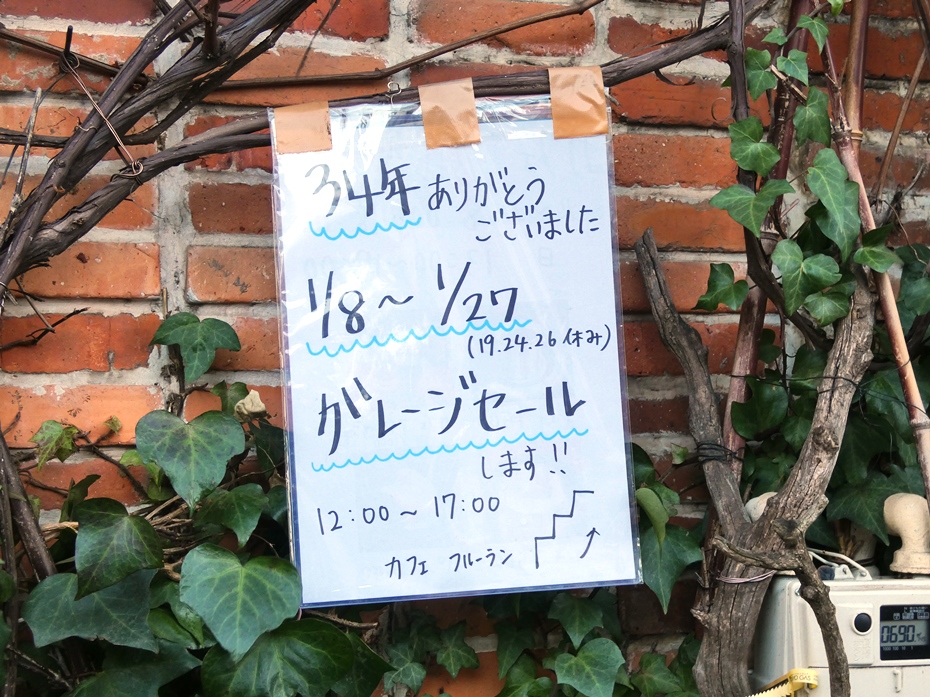 34年ありがとう
ございました
1/8～1/27
(19.24.26休み)
ガレージセール
します!!
12:00～17:00
カフェ フルーラン